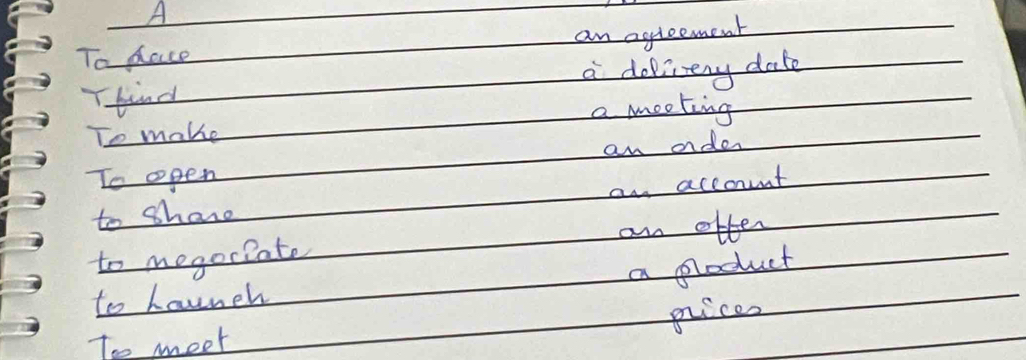 A
To place an agreement
T find a delivery date
To make a meeting
To open an order
to share an account
to negociate an offer
to launch a product
To meet prices